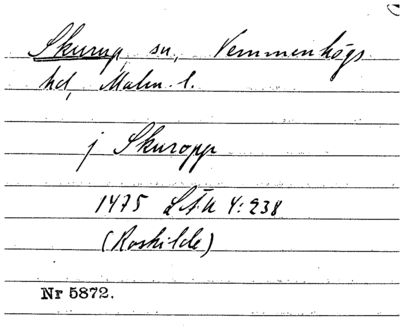 Skurup, sn, Vemmenhögs
hd, Malm. l.
j Skuropp
1475 LÄU 4:238
(Roskilde)
Nr 5872.